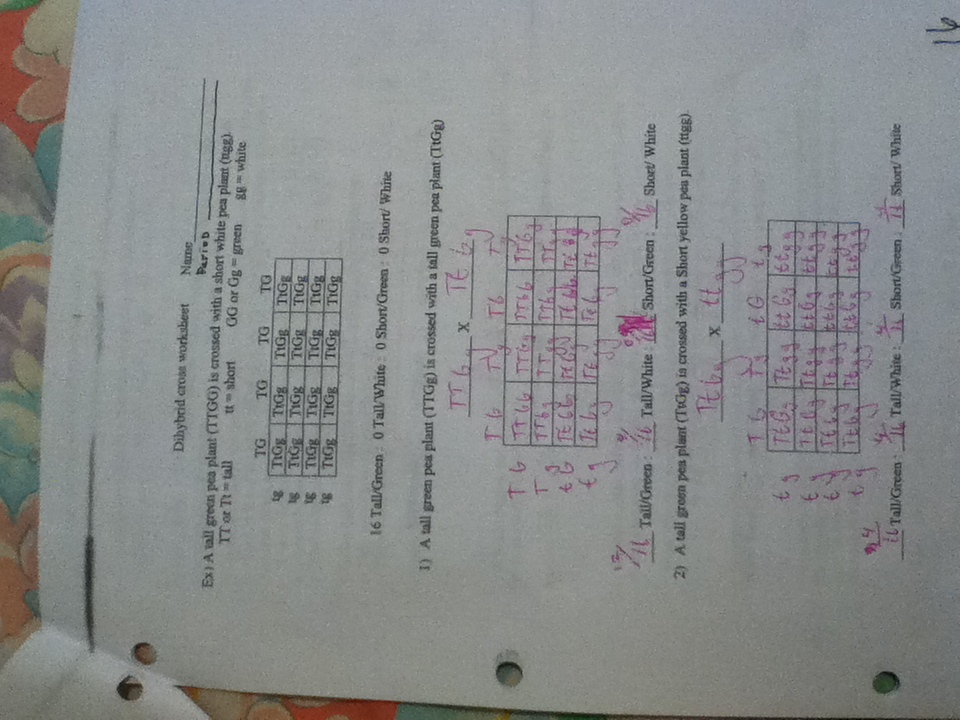 Dihybrid cross worksheet Name
Period
Ex) A tall green pea plant (TTGG) is crossed with a short white pea plant (ttgg)
TT or Tt = tall tt = short GG or Gg = green gg = white
TG TG TG TG
tg TtGg TtGg TtGg TtGg
tg TtGg TtGg TtGg TtGg
tg TtGg TtGg TtGg TtGg
tg TtGg TtGg TtGg TtGg
16 Tall/Green : 0 Tall/White : 0 Short/Green : 0 Short/ White
1) A tall green pea plant (TTGg) is crossed with a tall green pea plant (TtGg)
TTGg x TtGg
TG Tg TG Tg
TG TTGG TTGg TTGG TTGg
Tg TTGg TTgg TTGg TTgg
tG TtGG TtGg TtGG TtGg
tg TtGg Ttgg TtGg Ttgg
12/16 Tall/Green : /16 Tall/White : Short/Green : 0/16 Short/ White
2) A tall green pea plant (TtGg) is crossed with a Short yellow pea plant (ttgg).
TtGg x ttgg
TG Tg tG tg
tg TtGg Ttgg ttGg ttgg
tg TtGg Ttgg ttGg ttgg
tg TtGg Ttgg ttGg ttgg
tg TtGg Ttgg ttGg ttgg
4/16 Tall/Green : 4/16 Tall/White : 4/16 Short/Green : 4/16 Short/ White
16